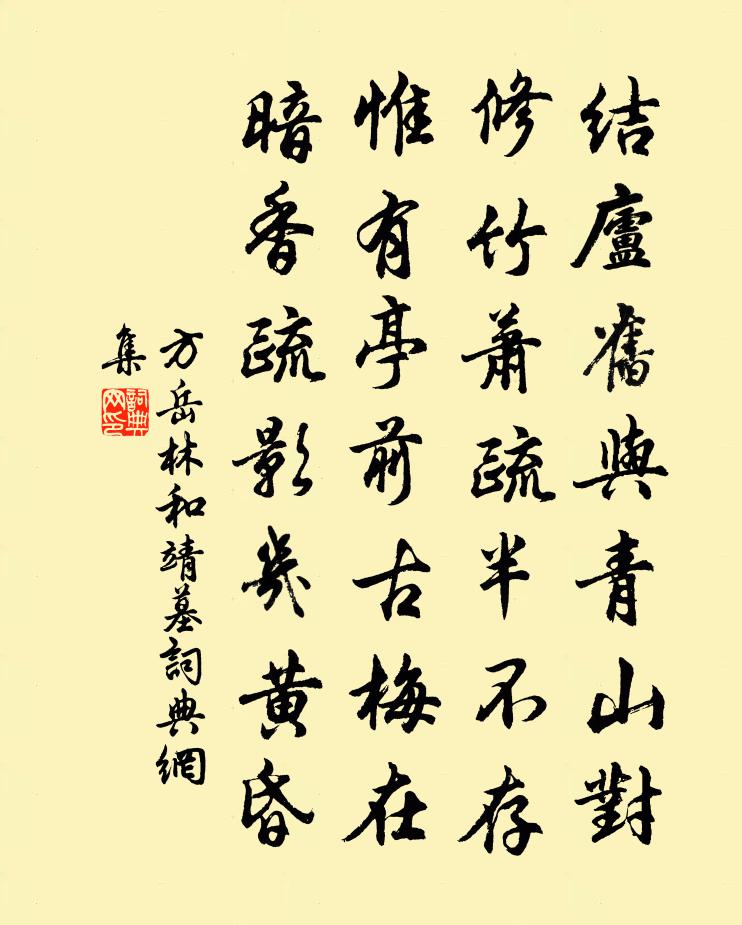 结廬舊與青山對
修竹蕭疏半不存
惟有亭前古梅在
暗香疏影幾黄昏
方岳林和靖墓詞典網
集
詞典網印